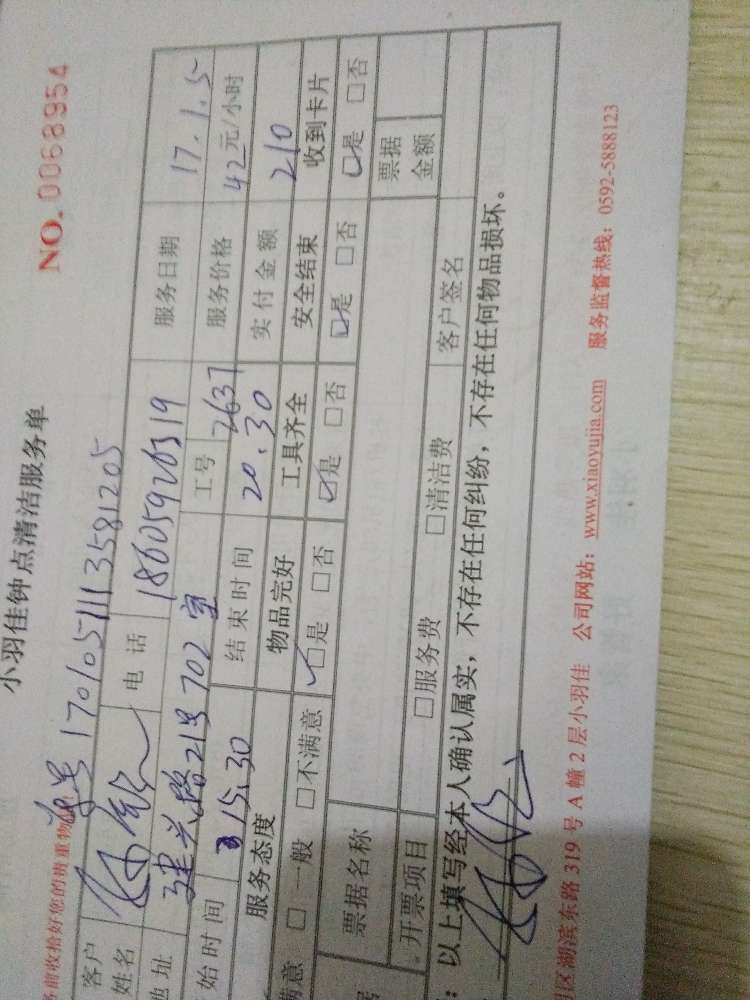 小羽佳钟点清洁服务单
NO. 0068954
前收拾好您的贵重物 单号 1701051113581205
客户姓名 电话 18605920319 服务日期 17.1.5
地址 建兴路21号702室 工号 2637 服务价格 42元/小时
始时间 15.30 结束时间 20.30 实付金额 210
服务态度 物品完好 工具齐全 安全结束 收到卡片
满意 □一般 □不满意 □是 □否 □是 □否 □是 □否 □是 □否
票据名称 票据金额
开票项目 □服务费 □清洁费 客户签名
：以上填写经本人确认属实，不存在任何纠纷，不存在任何物品损坏。
区湖滨东路 319 号 A 幢 2 层小羽佳 公司网站：www.xiaoyujia.com 服务监督热线：0592-5888123